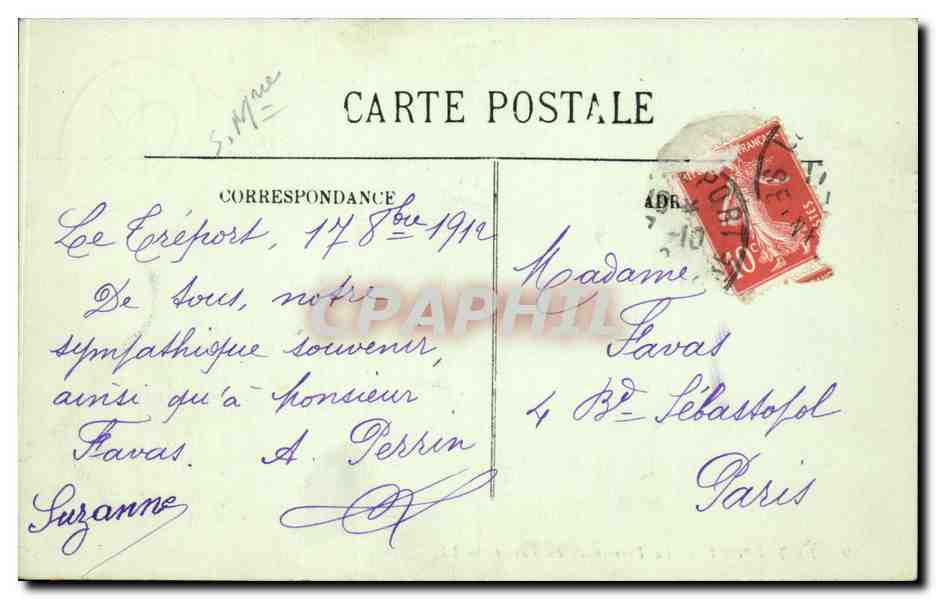 S. Mme
CARTE POSTALE
CORRESPONDANCE
Le Tréport, 17 8bre 1912
De tous, notre
sympathique souvenir,
ainsi qu'à monsieur
Favas. A. Perrin
Suzanne
Madame
Favas
4 Bd Sébastopol
Paris
10c
CPAPHIL